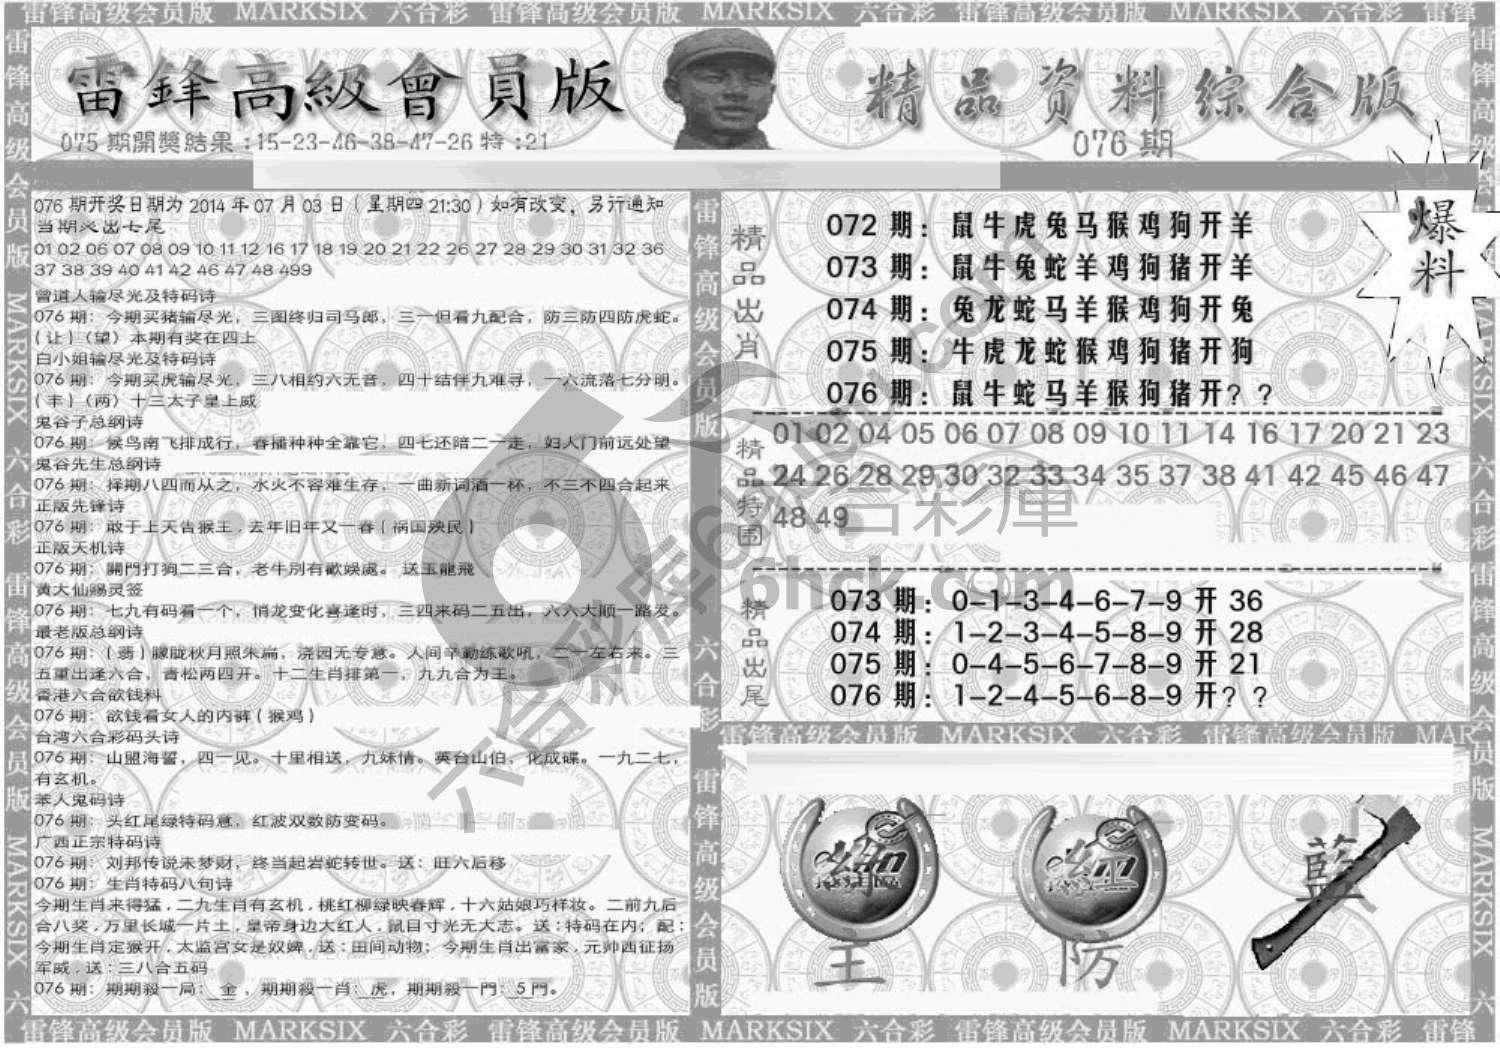 雷锋高级会员版 MARKSIX 六合彩 雷锋高级会员版 MARKSIX 六合彩 雷锋高级会员版 MARKSIX 六合彩 雷锋
雷鋒高級會員版
精品资料综合版
075 期開獎結果:15-23-46-38-47-26 特:21
076 期
爆料
076 期开奖日期为 2014 年 07 月 03 日（星期四 21:30）如有改变，另行通知
当期必出七尾
01 02 06 07 08 09 10 11 12 16 17 18 19 20 21 22 26 27 28 29 30 31 32 36
37 38 39 40 41 42 46 47 48 499
曾道人输尽光及特码诗
076 期：今期买猪输尽光，三图终归司马郎，三一但看九配合，防三防四防虎蛇。
（让）（望）本期有奖在四上
白小姐输尽光及特码诗
076 期：今期买虎输尽光，三八相约六无音，四十结伴九难寻，一六流落七分明。
（丰）（两）十三太子皇上威
鬼谷子总纲诗
076 期：候鸟南飞排成行，春播种种全靠它，四七还陪二一走，妇人门前远处望
鬼谷先生总纲诗
076 期：择期八四而从之，水火不容难生存，一曲新词酒一杯，不三不四合起来
正版先锋诗
076 期：敢于上天告猴王，去年旧年又一春（祸国殃民）
正版天机诗
076 期：關門打狗二三合，老牛別有歡娛處。 送玉龍飛
黄大仙赐灵签
076 期：七九有码看一个，悄龙变化喜逢时，三四来码二五出，六六大顺一路发。
最老版总纲诗
076 期：（翡）朦胧秋月照朱扁，浇园无专意。人间辛勤练歌吼，二一左右来。三
五重出逢六合，青松两四开。十二生肖排第一，九九合为王。
香港六合欲钱料
076 期：欲钱看女人的内裤（猴鸡）
台湾六合彩码头诗
076 期：山盟海誓，四一见。十里相送，九妹情。英台山伯，化成碟。一九二七，
有玄机。
苯人鬼码诗
076 期：头红尾绿特码意，红波双数防变码。
广西正宗特码诗
076 期：刘邦传说未梦财，终当起岩蛇转世。送：旺六后移
076 期：生肖特码八句诗
今期生肖来得猛，二九生肖有玄机，桃红柳绿映春辉，十六姑娘巧样妆。二前九后
合八奖，万里长城一片土，皇帝身边大红人，鼠目寸光无大志。送：特码在内；配：
今期生肖定猴开，太监宫女是奴婢，送：田间动物；今期生肖出富家，元帅西征扬
军威，送：三八合五码
076 期：期期殺一局：金，期期殺一肖：虎，期期殺一門：5 門。
精品出肖
072 期：鼠牛虎兔马猴鸡狗开羊
073 期：鼠牛兔蛇羊鸡狗猪开羊
074 期：兔龙蛇马羊猴鸡狗开兔
075 期：牛虎龙蛇猴鸡狗猪开狗
076 期：鼠牛蛇马羊猴狗猪开？？
精品特围
01 02 04 05 06 07 08 09 10 11 14 16 17 20 21 23
24 26 28 29 30 32 33 34 35 37 38 41 42 45 46 47
48 49
六合彩庫
6hck.com
精品出尾
073 期：0-1-3-4-6-7-9 开 36
074 期：1-2-3-4-5-8-9 开 28
075 期：0-4-5-6-7-8-9 开 21
076 期：1-2-4-5-6-8-9 开？？
雷锋高级会员版 MARKSIX 六合彩 雷锋高级会员版 MAR
綠 紅 藍
主 防
雷锋高级会员版 MARKSIX 六合彩 雷锋高级会员版 MARKSIX 六合彩 雷锋高级会员版 MARKSIX 六合彩 雷锋